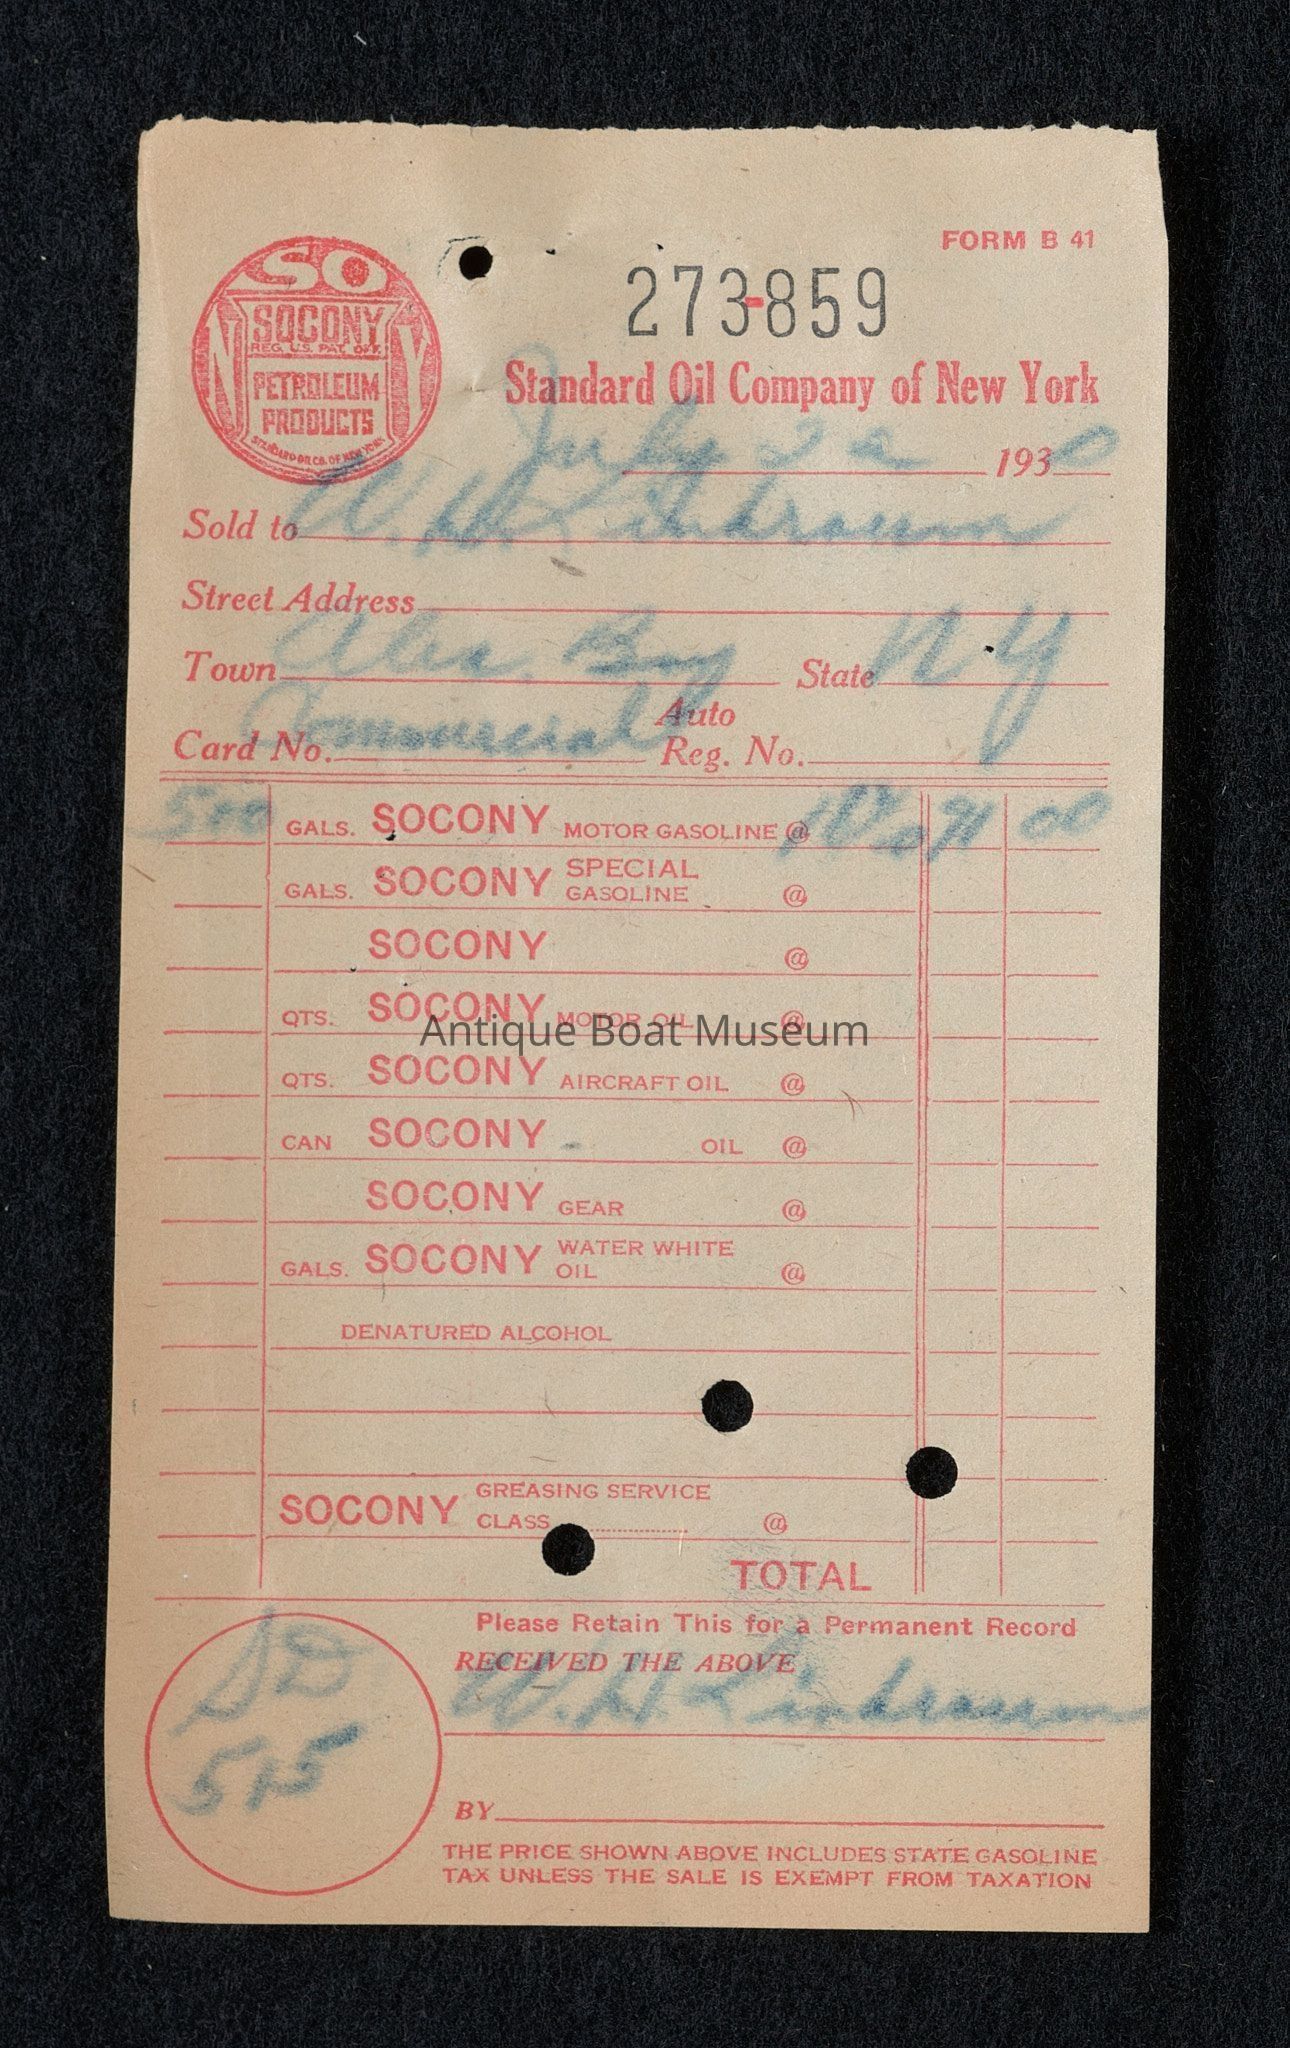 FORM B 41
SO
N Y
SOCONY
REG. U.S. PAT. OFF.
PETROLEUM
PRODUCTS
STANDARD OIL CO. OF NEW YORK
273-859
Standard Oil Company of New York
July 22 1930
Sold to W. H.
Street Address
Town Alex. Bay State N Y
Auto
Card No. Commercial Reg. No.
500 GALS. SOCONY MOTOR GASOLINE @ 00
GALS. SOCONY SPECIAL GASOLINE @
SOCONY @
QTS. SOCONY MOTOR OIL @
Antique Boat Museum
QTS. SOCONY AIRCRAFT OIL @
CAN SOCONY OIL @
SOCONY GEAR @
GALS. SOCONY WATER WHITE OIL @
DENATURED ALCOHOL
SOCONY GREASING SERVICE
CLASS @
TOTAL
Please Retain This for a Permanent Record
RECEIVED THE ABOVE
W. H.
SD
515
BY
THE PRICE SHOWN ABOVE INCLUDES STATE GASOLINE
TAX UNLESS THE SALE IS EXEMPT FROM TAXATION